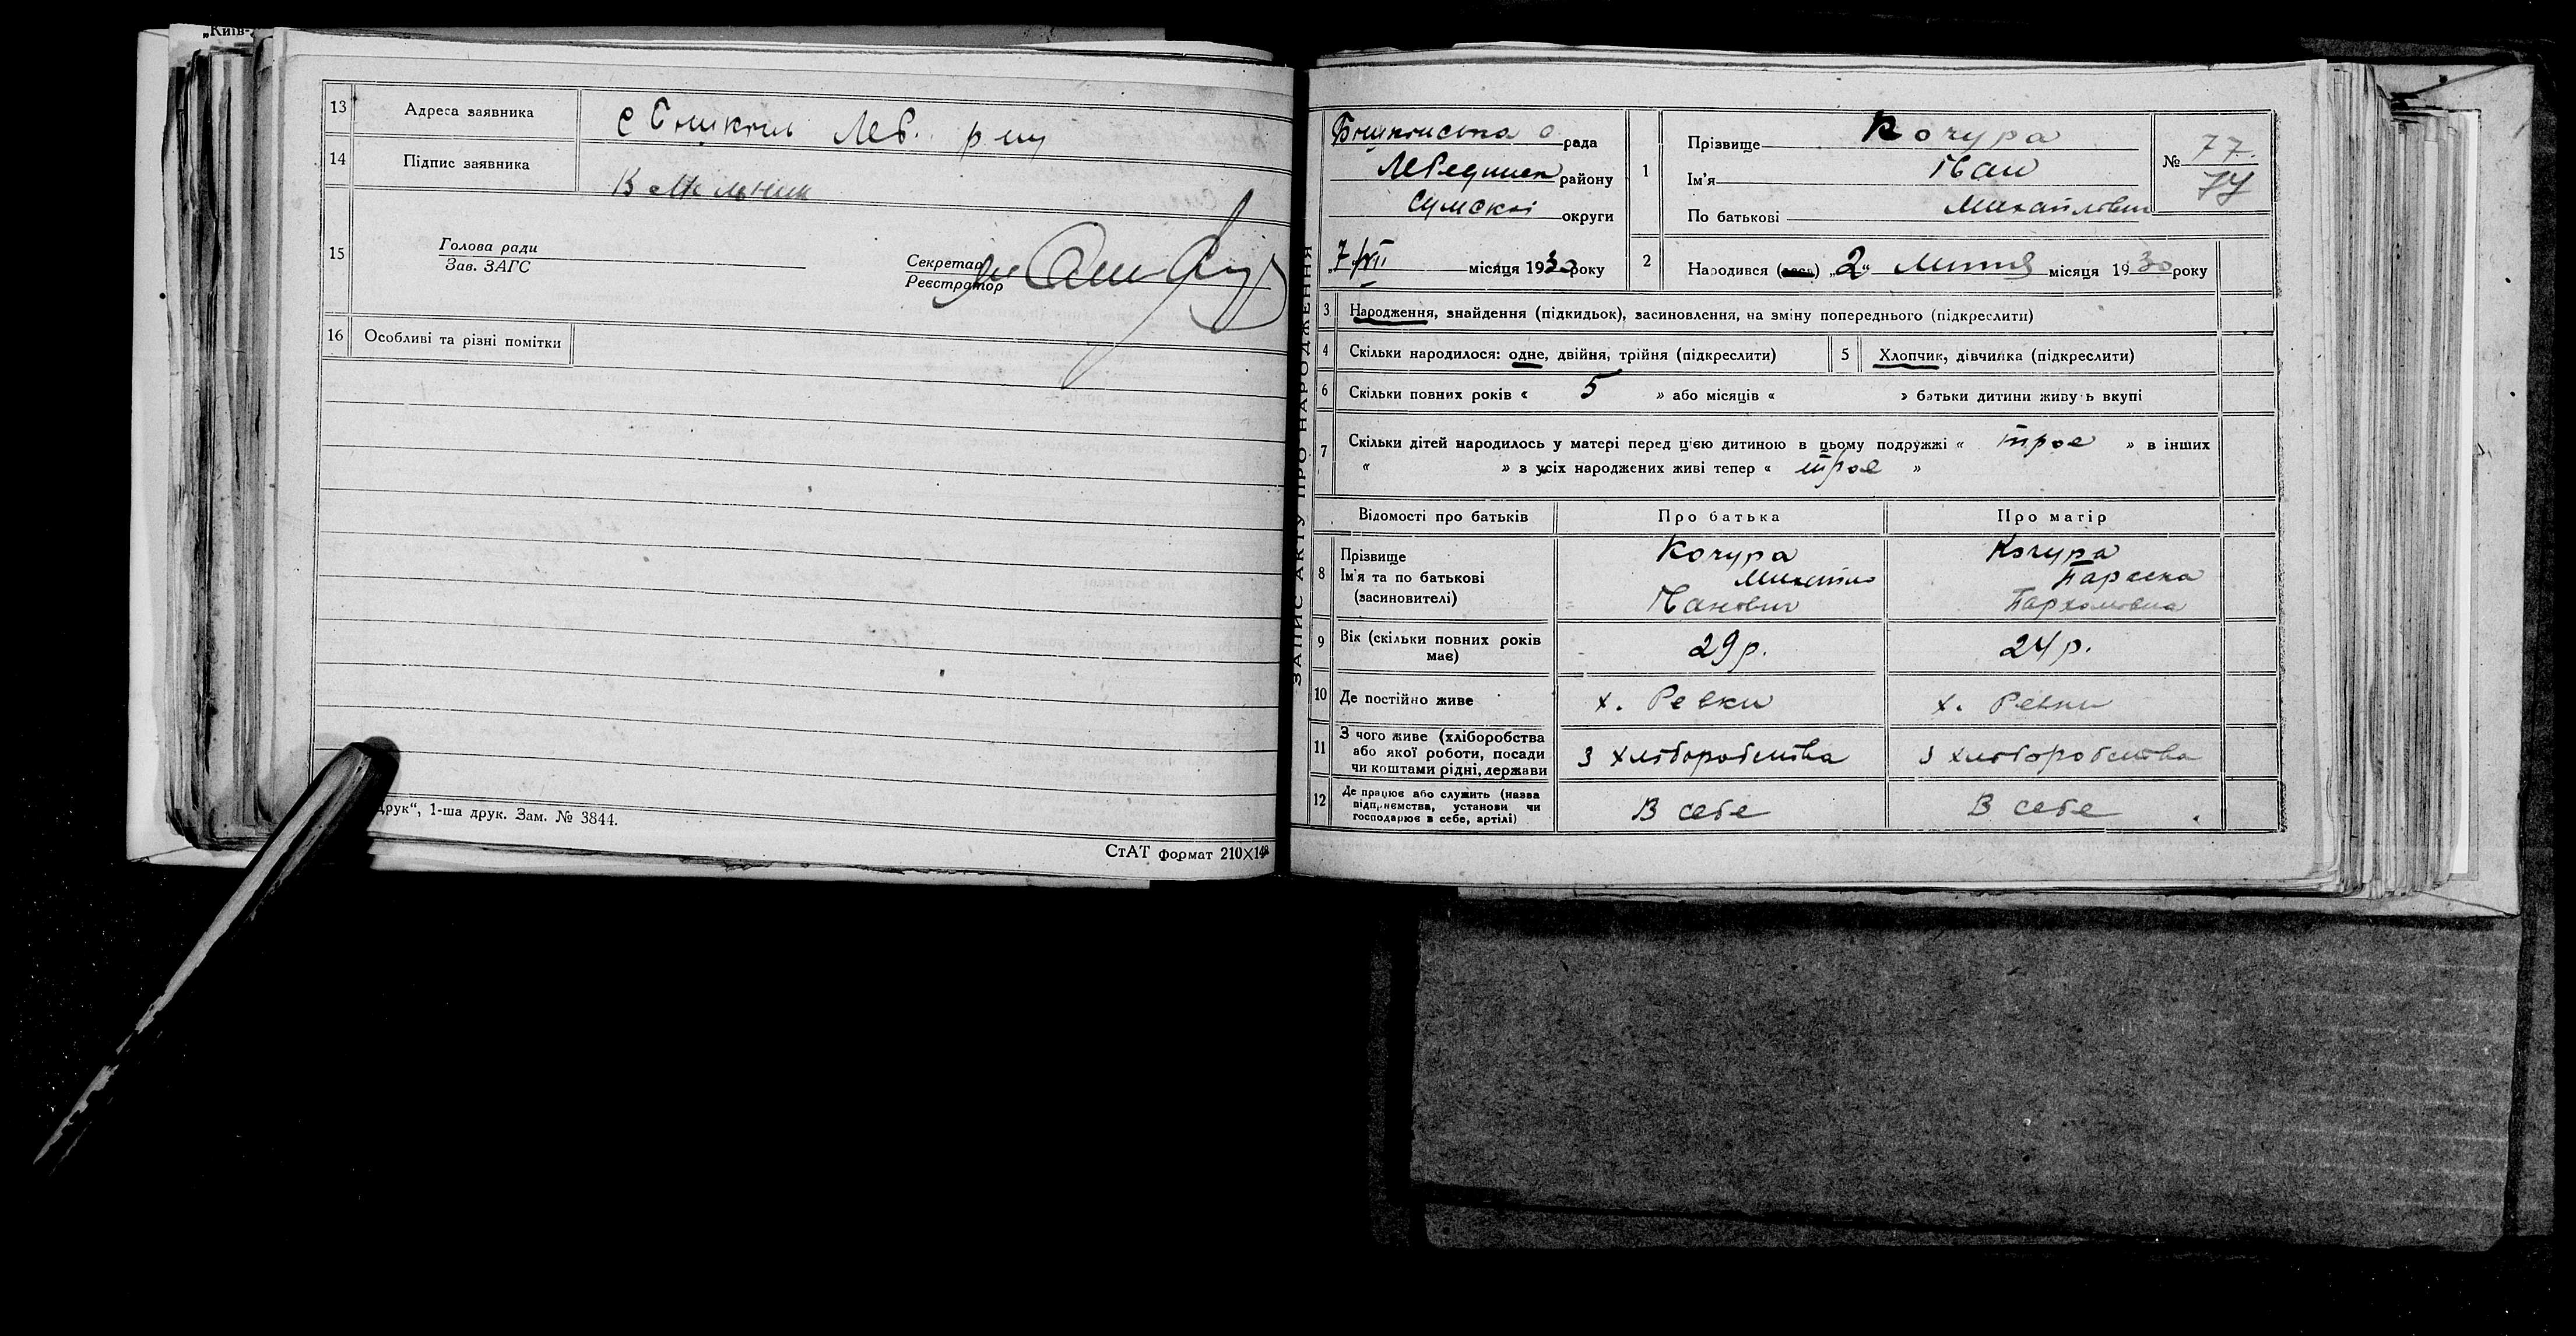 „Київ-
13 Адреса заявника с Леб.
14 Підпис заявника
15 Голова ради
Зав. ЗАГС
Секретар
Реєстратор
16 Особливі та різні помітки
друк“, 1-ша друк. Зам. № 3844.
СтАТ формат 210×148
ЗАПИС АКТУ ПРО НАРОДЖЕННЯ
с. рада
Лебединськ району
Сумскої округи
„7/VII місяця 1930 року
1 Прізвище Кочура
Ім'я Іван
По батькові Михайлович
№ 77
77
2 Народився (лась) „2“ липня місяця 1930 року
3 Народження, знайдення (підкидьок), засиновлення, на зміну попереднього (підкреслити)
4 Скільки народилося: одне, двійня, трійня (підкреслити) 5 Хлопчик, дівчинка (підкреслити)
6 Скільки повних років « 5 » або місяців « » батьки дитини живуть вкупі
7 Скільки дітей народилось у матері перед цією дитиною в цьому подружжі « троє » в інших
« » з усіх народжених живі тепер « троє »
Відомості про батьків Про батька Про матір
8 Прізвище Кочура Кочура
Ім'я та по батькові Параска
(засновителі) Іванович Пархомовна
9 Вік (скільки повних років має) 29 р. 24 р.
10 Де постійно живе х. Ревки х. Ревки
11 З чого живе (хліборобства
або якої роботи, посади
чи коштами рідні, держави З хліборобства З хліборобства
12 Де працює або служить (назва
підприємства, установи чи
господарює в себе, артілі) В себе В себе